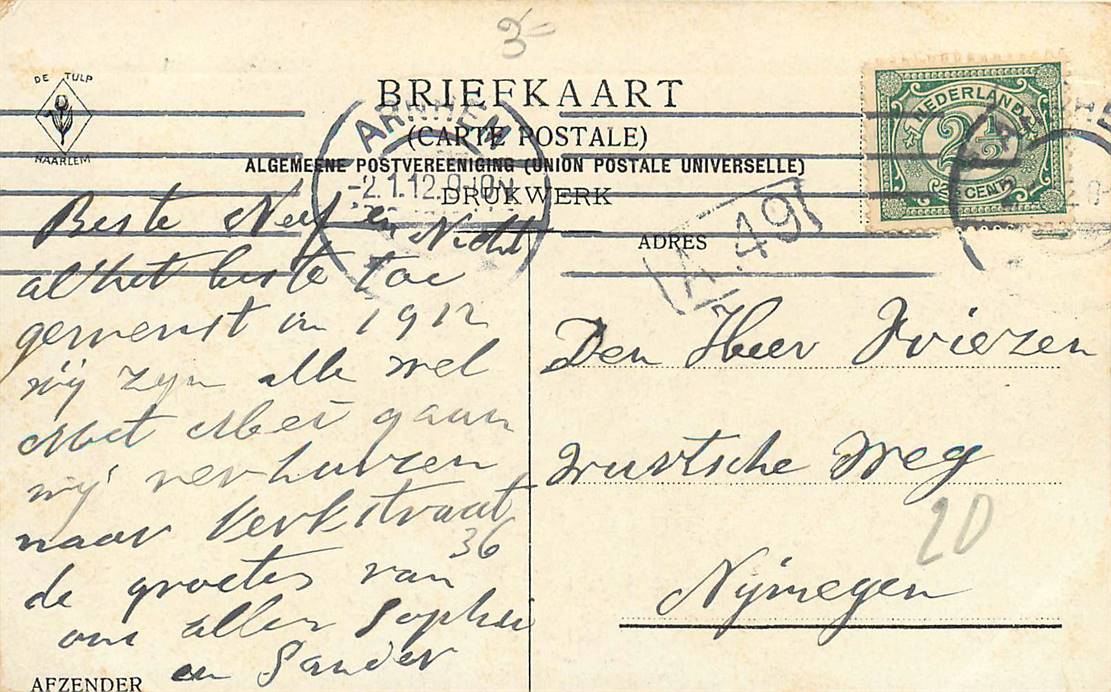 3=
DE TULP
HAARLEM
BRIEFKAART
(CARTE POSTALE)
ALGEMEENE POSTVEREENIGING (UNION POSTALE UNIVERSELLE)
DRUKWERK
NEDERLAND
2½
2½ CENT
ARNHEM
-2.1.12.9-10N
A.49
ADRES
Beste Neef en Nicht
al het beste toe
gewenst in 1912
wij zyn alle wel
Met Mei gaan
wij verhuizen
naar Kerkstraat
36
de groeten van
ons allen Sophie
en Sander
AFZENDER
Den Heer Vriezen
Weg
20
Nijmegen